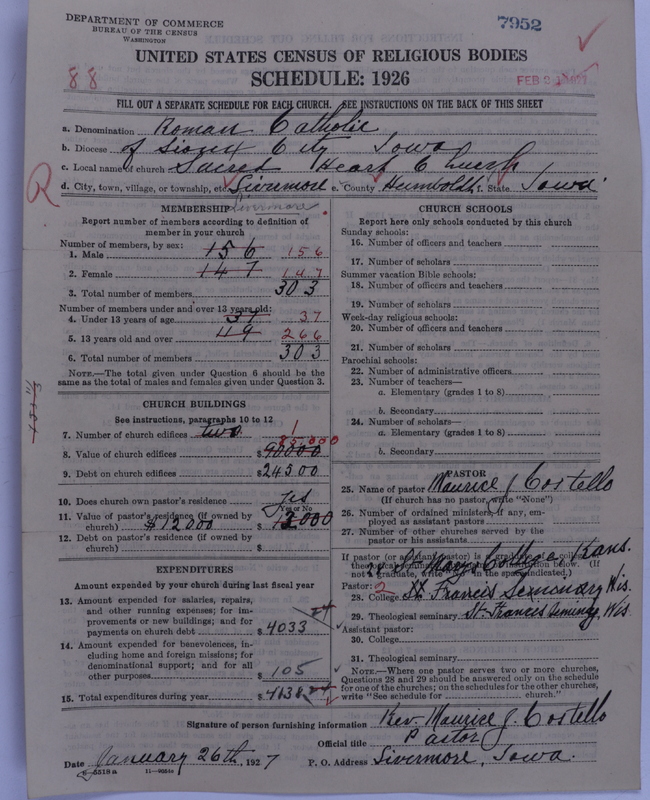 DEPARTMENT OF COMMERCE
BUREAU OF THE CENSUS
WASHINGTON
7952
UNITED STATES CENSUS OF RELIGIOUS BODIES
SCHEDULE: 1926
88
FILL OUT A SEPARATE SCHEDULE FOR EACH CHURCH. SEE INSTRUCTIONS ON THE BACK OF THIS SHEET
a. Denomination Roman Catholic
b. Diocese of Sioux City Iowa
c. Local name of church Sacred Heart Church
d. City, town, village, or township, etc. Livermore e. County Humboldt f. State Iowa
R
Livermore
MEMBERSHIP
Report number of members according to definition of member in your church
Number of members, by sex:
1. Male 156 156
2. Female 147 147
3. Total number of members 303
Number of members under and over 13 years old:
4. Under 13 years of age 37 37
5. 13 years old and over 49 266
6. Total number of members 303
NOTE.—The total given under Question 6 should be the same as the total of males and females given under Question 3.
CHURCH BUILDINGS
See instructions, paragraphs 10 to 12
7. Number of church edifices two 1
8. Value of church edifices $90000 85,000
9. Debt on church edifices $24500
10. Does church own pastor's residence yes
Yes or No
11. Value of pastor's residence (if owned by church) $12000 $12000
12. Debt on pastor's residence (if owned by church) $
EXPENDITURES
Amount expended by your church during last fiscal year
13. Amount expended for salaries, repairs, and other running expenses; for improvements or new buildings; and for payments on church debt $4033 24
14. Amount expended for benevolences, including home and foreign missions; for denominational support; and for all other purposes $105
15. Total expenditures during year $4138 24
CHURCH SCHOOLS
Report here only schools conducted by this church
Sunday schools:
16. Number of officers and teachers
17. Number of scholars
Summer vacation Bible schools:
18. Number of officers and teachers
19. Number of scholars
Week-day religious schools:
20. Number of officers and teachers
21. Number of scholars
Parochial schools:
22. Number of administrative officers
23. Number of teachers—
a. Elementary (grades 1 to 8)
b. Secondary
24. Number of scholars—
a. Elementary (grades 1 to 8)
b. Secondary
PASTOR
25. Name of pastor Maurice J Costello
(If church has no pastor, write "None")
26. Number of ordained ministers, if any, employed as assistant pastors
27. Number of other churches served by the pastor or his assistants
If pastor (or assistant pastor) is a graduate of a college
St Marys College, Kans.
Pastor: 2
28. College St Francis Seminary Wis.
29. Theological seminary St. Francis Seminary Wis
Assistant pastor:
30. College
31. Theological seminary
NOTE.—Where one pastor serves two or more churches, Questions 28 and 29 should be answered only on the schedule for one of the churches; on the schedules for the other churches, write "See schedule for church."
Signature of person furnishing information Rev. Maurice J. Costello
Official title Pastor
Date January 26th, 1927 P. O. Address Livermore, Iowa.